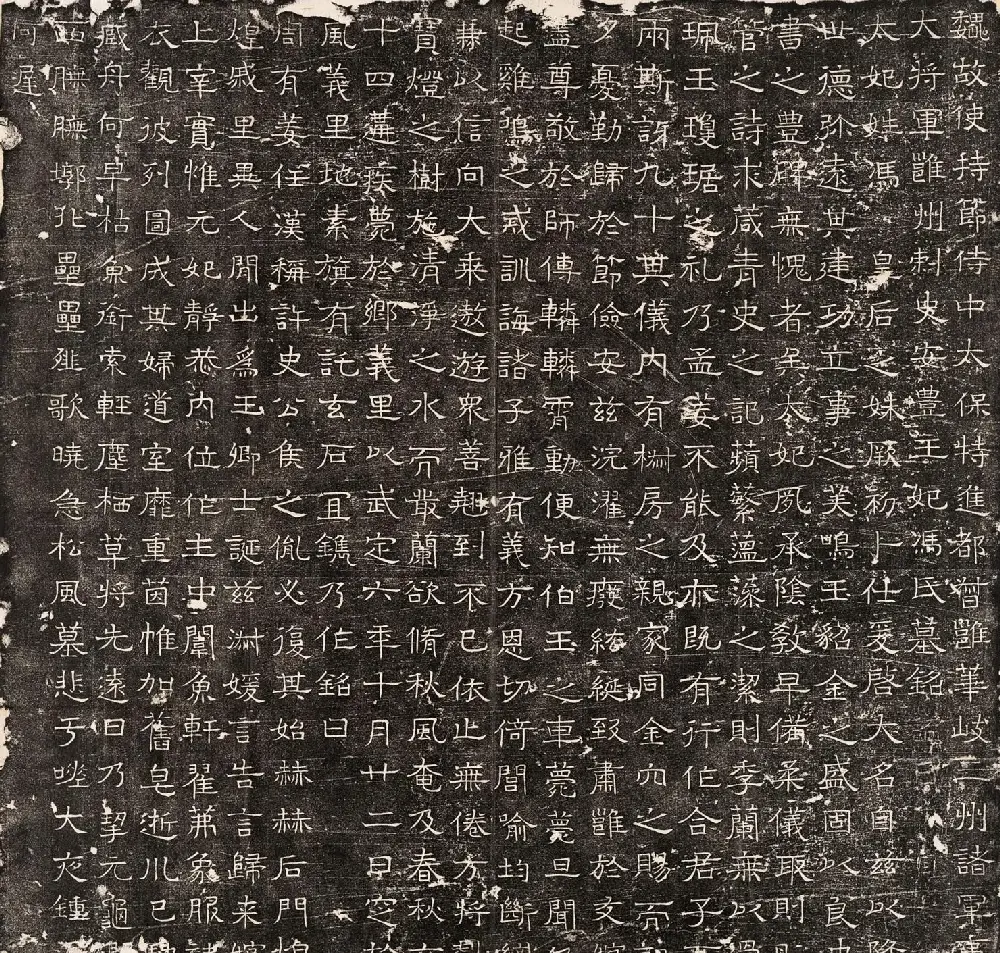 魏故使持節侍中太保特進都督雝華岐三州諸軍
大将軍雝州刺史安豊王妃馮氏墓銘
太妃姓馮皇后之妹厥初卜仕爰啓大名自兹以
世德弥遠其建功立事之美鳴玉貂金之盛固以良
書之豊碑無愧者矣太妃夙承陰教早備柔儀取則
管之詩求葴青史之記蘋蘩薀藻之潔則季蘭無以
珮玉瓊琚之礼乃孟姜不能及亦既有行作合君子
兩斯訝九十其儀内有椒房之親家同金穴之賜而
夕憂勤歸於節儉安兹浣濯無癈絺綖致肅雝於
盡尊敬於師傅轔轔霄動便知伯玉之車薨薨旦聞
起雞鳴之戒訓誨諸子雅有義方恩切倚閭喻均斷
兼以信向大乘遨遊衆善翹到不已依止無倦方将
寶燈之樹施清淨之水而散蘭欲脩秋風奄及春秋
十四遘疾薨於鄉義里以武定六年十月廿二日窆
風義里地素旗有託玄石冝鐫乃作銘曰
周有姜任漢稱許史公侯之胤必復其始赫赫后門
煌戚里異人閒出爲王卿士誕兹淑媛言告言歸来
上宰實惟元妃靜恭内位作主中闈魚軒翟茀象服
衣觀彼列圖成其婦道室靡重茵帷加舊皂逝川已
藏舟何早枯魚銜索輕塵栖草将先遠日乃挈元龜
西陵臃墎北壘壘䢜歌曉急松風暮悲于嗟大夜鍾
何遅